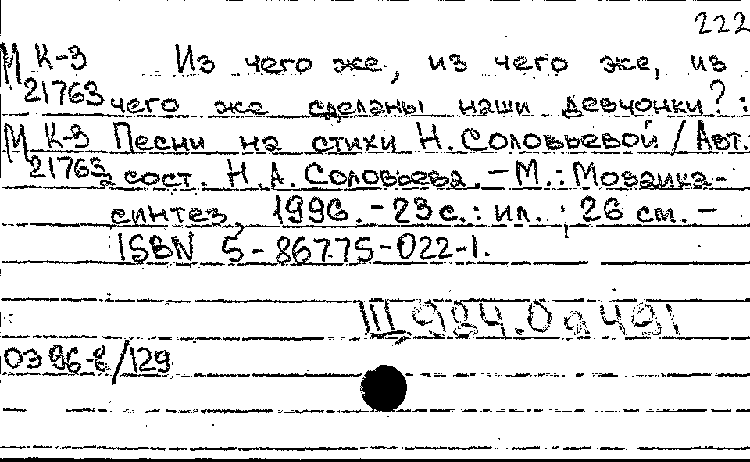 222
М К-3 Из чего же, из чего же, из
21763 чего же сделаны наши девчонки? :
М К-3 Песни на стихи Н. Соловьевой / Авт.
21763а сост. Н. А. Соловьева. – М. : Мозаика-
синтез, 1996. – 23 с. : ил. ; 26 см. –
ISBN 5-86775-022-1.
III 984.0а491
ОЭ 96-8/129